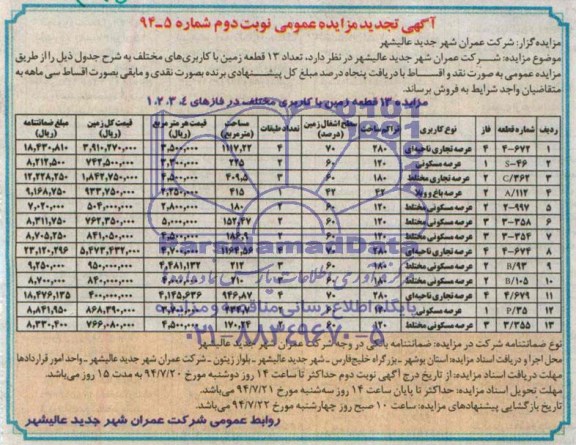 آگهی تجدید مزایده عمومی نوبت دوم شماره ۵-۹۴
مزایده گزار: شرکت عمران شهر جدید عالیشهر
موضوع مزایده: شرکت عمران شهر جدید عالیشهر در نظر دارد، تعداد ۱۳ قطعه زمین با کاربری‌های مختلف به شرح جدول ذیل را از طریق
مزایده عمومی به صورت نقد و اقساط با دریافت پنجاه درصد مبلغ کل پیشنهادی برنده بصورت نقدی و مابقی بصورت اقساط سی ماهه به
متقاضیان واجد شرایط به فروش برساند.
مزایده ۱۳ قطعه زمین با کاربری مختلف در فازهای ۱،۲،۳،۴
ردیف شماره قطعه فاز نوع کاربری تراکم ساخت سطح اشغال زمین (درصد) تعداد طبقات مساحت (مترمربع) قیمت هر مترمربع (ریال) قیمت کل زمین (ریال) مبلغ ضمانتنامه (ریال)
۱ ۴-۶۷۲ ۴ عرصه تجاری ناحیه‌ای ۲۸۰ ۷۰ ۴ ۱۱۱۷,۲۲ ۳,۵۰۰,۰۰۰ ۳,۹۱۰,۲۷۰,۰۰۰ ۱۸,۴۳۰,۸۱۰
۲ S-۴۶ ۱ عرصه مسکونی ۱۲۰ ۶۰ ۲ ۲۲۵ ۳,۳۰۰,۰۰۰ ۷۴۲,۵۰۰,۰۰۰ ۸,۲۱۲,۵۰۰
۳ C/۳۶۲ ۲ عرصه تجاری مختلط ۱۸۰ ۶۰ ۳ ۴۰۹,۵ ۴,۵۰۰,۰۰۰ ۱,۸۴۲,۷۵۰,۰۰۰ ۱۲,۲۲۸,۲۵۰
۴ ۸/۱۱۲ ۲ عرصه باغ و ویلا ۴۲ ۴۲ ۴۱۵ ۲,۲۵۰,۰۰۰ ۹۳۳,۷۵۰,۰۰۰ ۹,۱۶۸,۷۵۰
۵ ۲-۹۹۷ ۲ عرصه مسکونی مختلط ۱۲۰ ۶۰ ۱۸۰ ۲,۸۰۰,۰۰۰ ۵۰۴,۰۰۰,۰۰۰ ۷,۰۲۰,۰۰۰
۶ ۳-۳۵۸ ۳ عرصه مسکونی مختلط ۱۲۰ ۶۰ ۲ ۱۵۲,۴۷ ۵,۰۰۰,۰۰۰ ۷۶۲,۳۵۰,۰۰۰ ۸,۳۱۱,۷۵۰
۷ ۳-۳۵۴ ۳ عرصه مسکونی مختلط ۱۲۰ ۶۰ ۱۸۶,۹ ۴,۵۰۰,۰۰۰ ۸۴۱,۰۵۰,۰۰۰ ۸,۷۰۵,۲۵۰
۸ ۴-۶۷۴ ۴ عرصه تجاری ناحیه‌ای ۲۸۰ ۷۰ ۱۱۶۴,۵۶ ۴,۷۰۰,۰۰۰ ۵,۴۷۳,۴۳۲,۰۰۰ ۲۳,۱۲۰,۲۹۶
۹ B/۹۳ ۲ عرصه مسکونی مختلط ۱۸۰ ۶۰ ۳ ۲۱۲ ۴,۴۸۱,۱۳۲ ۹۵۰,۰۰۰,۰۰۰ ۹,۲۵۰,۰۰۰
۱۰ B/۱۰۵ ۲ عرصه مسکونی مختلط ۸۴۰,۰۰۰,۰۰۰ ۸,۷۰۰,۰۰۰
۱۱ ۴/۶۷۹ ۴ عرصه تجاری ناحیه‌ای ۲۸۰ ۷۰ ۴ ۹۴۶,۸۷ ۴,۱۳۵,۶۳۶ ۱۸,۴۷۶,۱۳۵
۱۲ ۶/۳۵ ۱ عرصه مسکونی ۸۶۸,۳۹۰,۰۰۰ ۸,۸۴۱,۹۵۰
۱۳ ۳/۳۵۵ ۳ عرصه مسکونی مختلط ۱۷۰,۲۴ ۴,۵۰۰,۰۰۰ ۷۶۶,۰۸۰,۰۰۰ ۸,۳۳۰,۴۰۰
ParsNamadData
پایگاه اطلاع رسانی مناقصه و مزایده
۰۲۱-۸۸۳۴۹۶۷۰-۵
نوع ضمانتنامه شرکت در مزایده: ضمانتنامه بانکی در وجه شرکت عمران شهر جدید عالیشهر
محل اجرا و دریافت اسناد مزایده: استان بوشهر - بزرگراه خلیج فارس - شهر جدید عالیشهر - بلوار زیتون - شرکت عمران شهر جدید عالیشهر - واحد امور قراردادها
مهلت دریافت اسناد مزایده: از تاریخ درج آگهی نوبت دوم حداکثر تا ساعت ۱۴ روز دوشنبه مورخ ۹۴/۷/۲۰ به مدت ۱۵ روز می‌باشد.
مهلت تحویل اسناد مزایده: حداکثر تا پایان ساعت ۱۴ روز سه‌شنبه مورخ ۹۴/۷/۲۱ می‌باشد.
تاریخ بازگشایی پیشنهادهای مزایده: ساعت ۱۰ صبح روز چهارشنبه مورخ ۹۴/۷/۲۲ می‌باشد.
روابط عمومی شرکت عمران شهر جدید عالیشهر